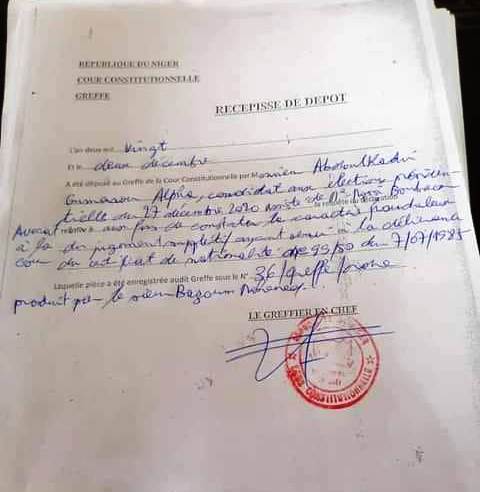 REPUBLIQUE DU NIGER
COUR CONSTITUTIONNELLE
GREFFE
RECEPISSE DE DEPOT
L'an deux mil vingt
Et le deux décembre
A été déposé au Greffe de la Cour Constitutionnelle par Monsieur Abdoul Kadri
Oumarou Alpha, candidat aux élections présiden-
tielle du 27 décembre 2020 assisté de Me
Avocat relative à aux fins de constater le caractère frauduleux
à la du jugement supplétif ayant servi à la délivrance
cour du certificat de nationalité 99/50 du 7/07/1985
Laquelle pièce a été enregistrée audit Greffe sous le N° 36/greffe/
produit par le sieur Bazoum Mohamed.
LE GREFFIER EN CHEF
COUR CONSTITUTIONNELLE